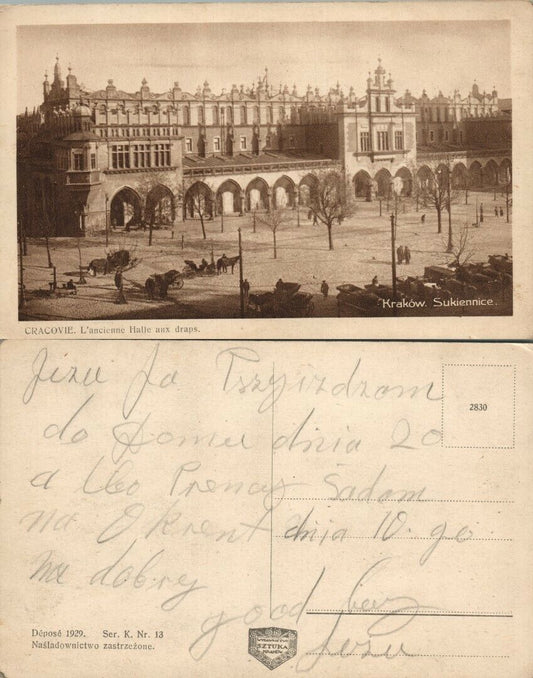 Kraków. Sukiennice.
CRACOVIE. L'ancienne Halle aux draps.
2830
Jezu Ja Pszyizdzom
do Domu dnia 20
a Ubo Prencz Sadam
na Okrent dnia 10. go
na dobrey
good bay
Jezu
Déposé 1929. Ser. K. Nr. 13
Naśladownictwo zastrzeżone.
SZTUKA
KRAKÓW